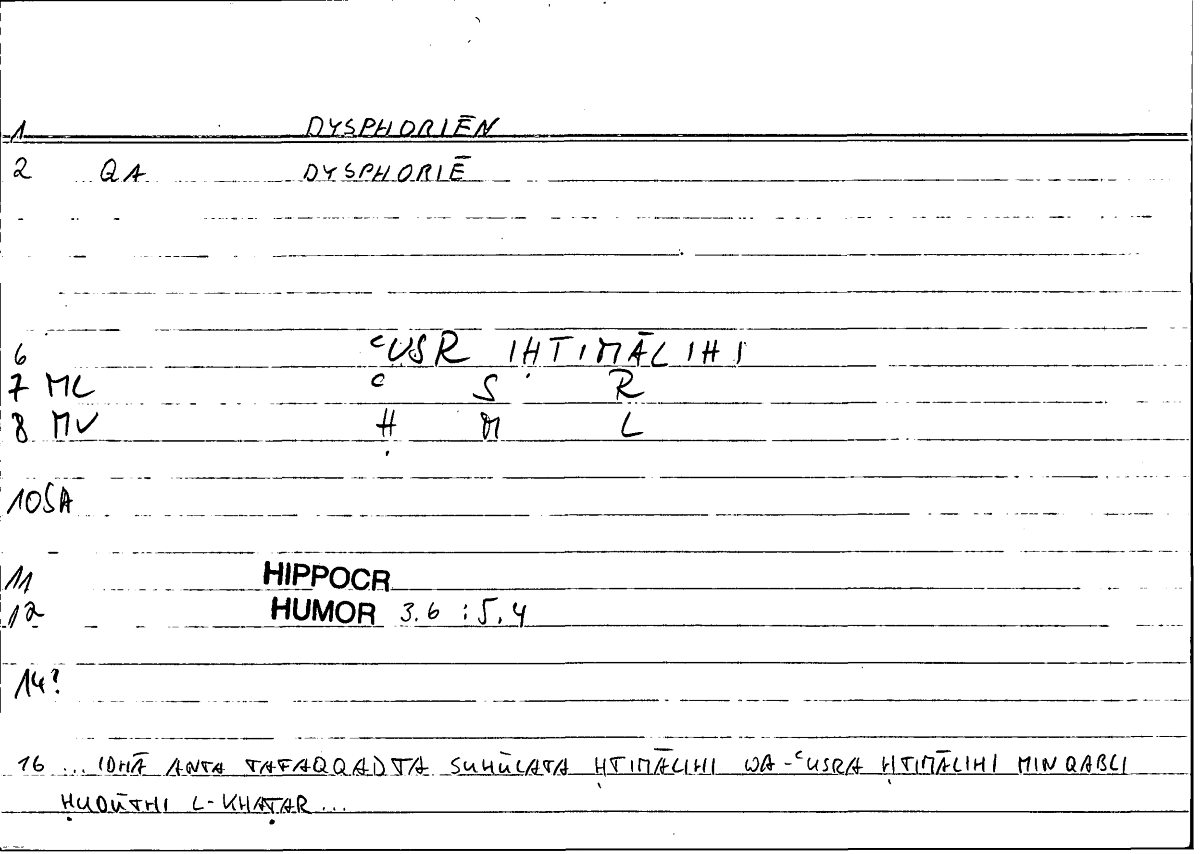 1 DYSPHORIĒN
2 QA DYSPHORIĒ
6 ᶜUSR IḤTIMĀLIHI
7 ML ᶜ S R
8 MV Ḥ M L
10 SA
11 HIPPOCR
12 HUMOR 3.6 : 5,4
14?
16 ... IDHĀ ANTA TAFAQQADTA SUHŪLATA ḤTIMĀLIHI WA-ᶜUSRA ḤTIMĀLIHI MIN QABLI
ḤUDŪTHI L-KHAṬAR ...